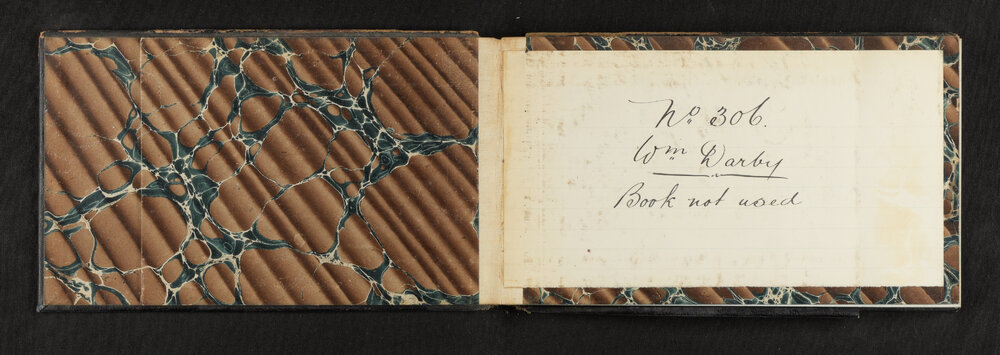 No 306.
Wm Darby
Book not used